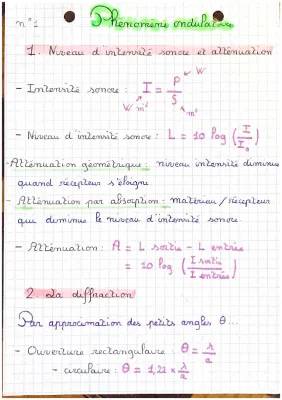 n°1
Phénomène ondulatoire
1. Niveau d'intensité sonore et atténuation
- Intensité sonore : I = P/S
W
W m⁻²
m²
- Niveau d'intensité sonore : L = 10 log (I/I₀)
- Atténuation géométrique : niveau intensité diminue
quand récepteur s'éloigne
- Atténuation par absorption : matériau / récepteur
qui diminue le niveau d'intensité sonore.
- Atténuation : A = L sortie - L entrée
= 10 log (I sortie / I entrée)
2. La diffraction
Par approximation des petits angles θ...
- Ouverture rectangulaire : θ = λ/a
- circulaire : θ = 1,22 × λ/a